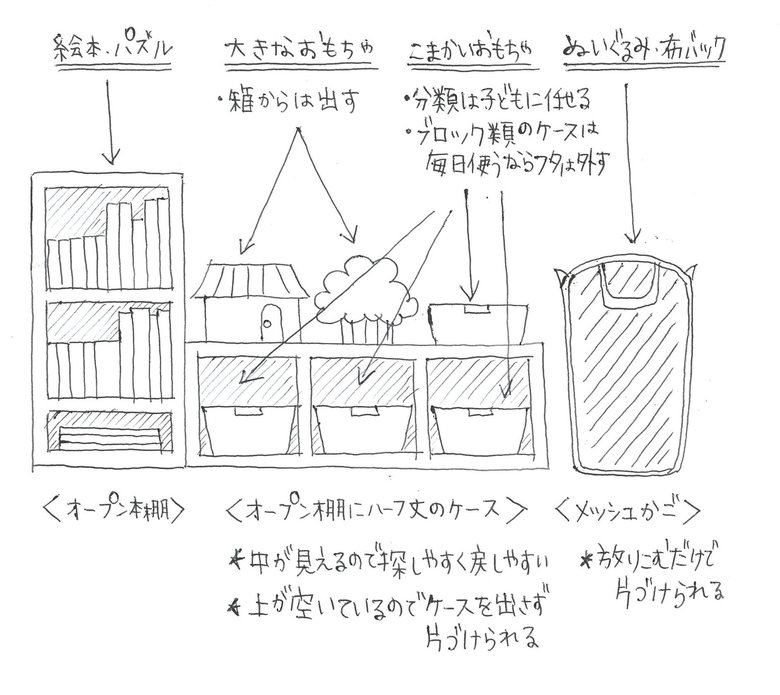 絵本・パズル
大きなおもちゃ
・箱からは出す
こまかいおもちゃ
・分類は子どもに任せる
・ブロック類のケースは
毎日使うならフタは外す
ぬいぐるみ・布バック
＜オープン本棚＞
＜オープン棚にハーフ丈のケース＞
＊中が見えるので探しやすく戻しやすい
＊上が空いているのでケースを出さず
片づけられる
＜メッシュかご＞
＊放りこむだけで
片づけられる